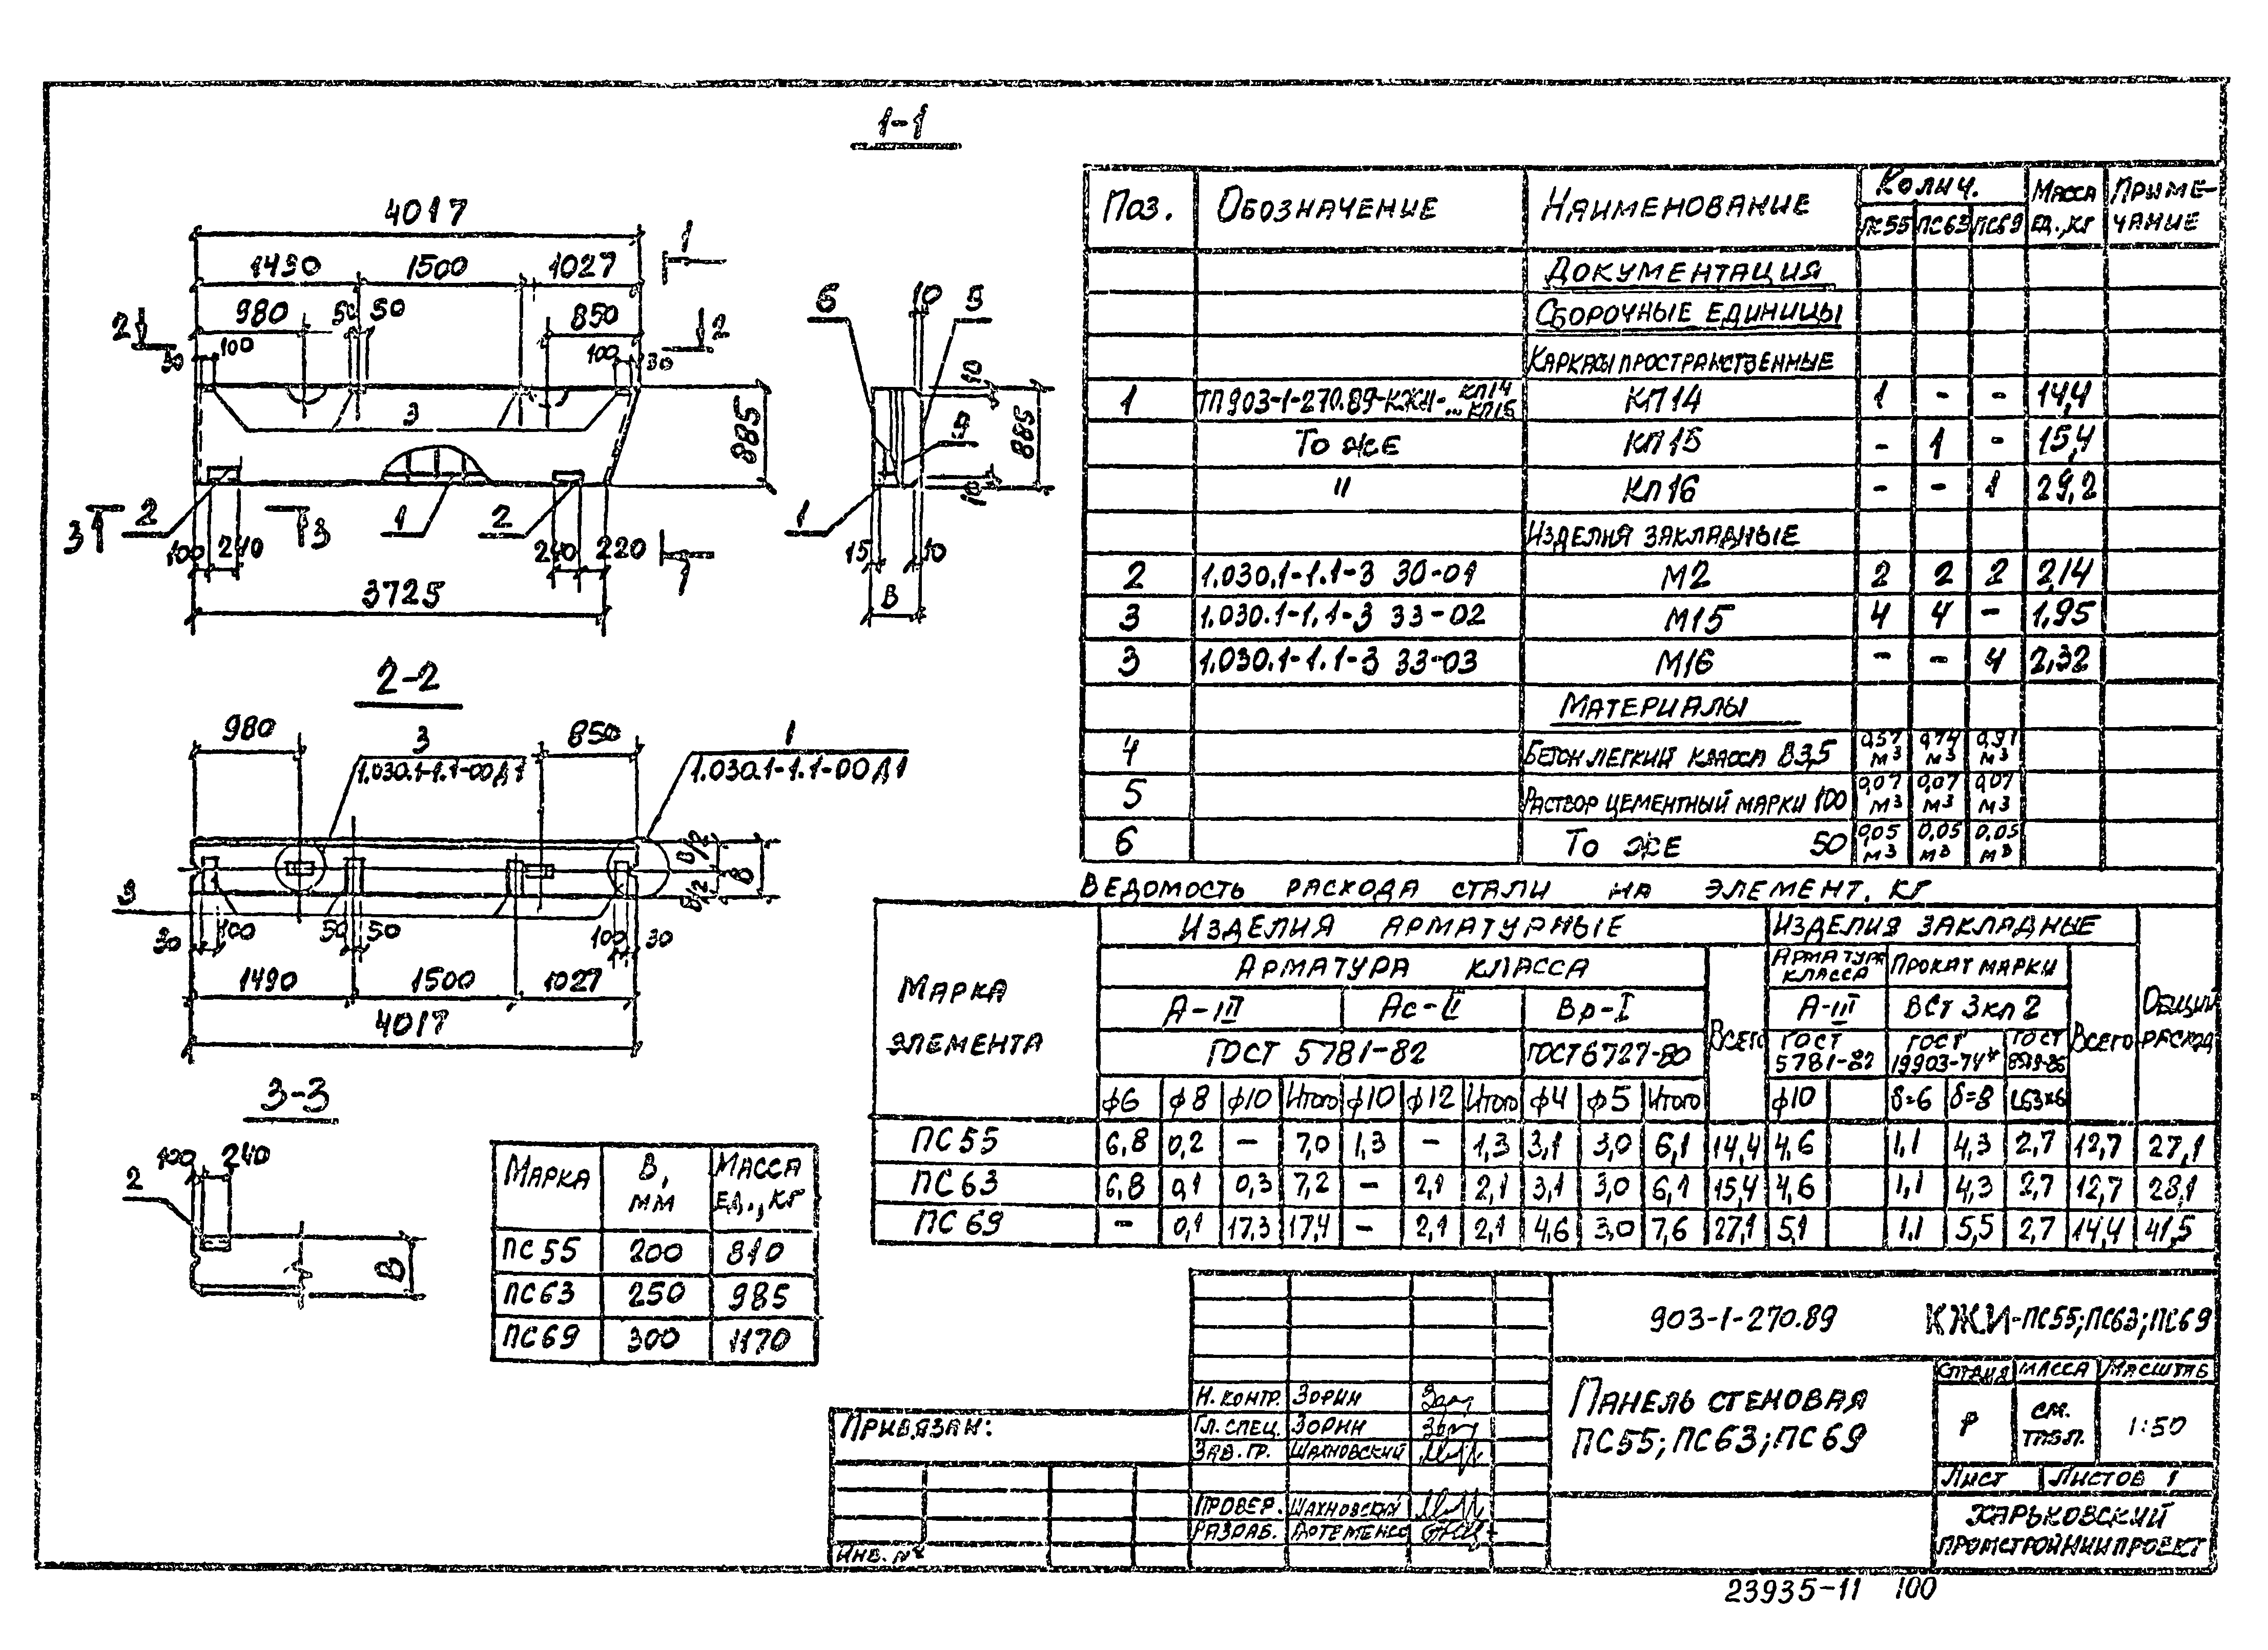 1-1
4017
1490 1500 1027
980 50 50 850
1
2 2
30 100 100 30
3
885
2 1 2
3 3
100 240 240 220
1
3725
6 10 5
10
885
10
1
15 10
В
2-2
980 3 850 1
1.030.1-1.1-00Д1 1.030.1-1.1-00Д1
В/2
В/2
В
3
30 100 50 50 100 30
1490 1500 1027
4017
3-3
100 240
2
В
Марка В, мм Масса ед., кг
ПС55 200 810
ПС63 250 985
ПС69 300 1170
Поз. Обозначение Наименование Колич. Масса ед., кг Примечание
ПС55 ПС63 ПС69
Документация
Сборочные единицы
Каркасы пространственные
1 ТП903-1-270.89-КЖИ-КП14 ...КП15 КП14 1 - - 14,4
То же КП15 - 1 - 15,4
" КП16 - - 1 29,2
Изделия закладные
2 1.030.1-1.1-3 30-01 М2 2 2 2 2,14
3 1.030.1-1.1-3 33-02 М15 4 4 - 1,95
3 1.030.1-1.1-3 33-03 М16 - - 4 2,32
Материалы
4 Бетон легкий класса В3,5 0,57 м3 0,74 м3 0,91 м3
5 Раствор цементный марки 100 0,07 м3 0,07 м3 0,07 м3
6 То же 50 0,05 м3 0,05 м3 0,05 м3
Ведомость расхода стали на элемент, кг
Марка элемента Изделия арматурные Изделия закладные Общий расход
Арматура класса Всего Арматура класса Прокат марки Всего
А-III Ас-II Вр-I А-III ВСт 3кп2
ГОСТ 5781-82 ГОСТ6727-80 ГОСТ 5781-82 ГОСТ 19903-74* ГОСТ
ф6 ф8 ф10 Итого ф10 ф12 Итого ф4 ф5 Итого ф10 δ=6 δ=8 L63×6
ПС55 6,8 0,2 - 7,0 1,3 - 1,3 3,1 3,0 6,1 14,4 4,6 1,1 4,3 2,7 12,7 27,1
ПС63 6,8 0,1 0,3 7,2 - 2,1 2,1 3,1 3,0 6,1 15,4 4,6 1,1 4,3 2,7 12,7 28,1
ПС69 - 0,1 17,3 17,4 - 2,1 2,1 4,6 3,0 7,6 27,1 5,1 1,1 5,5 2,7 14,4 41,5
903-1-270.89 КЖИ-ПС55;ПС63;ПС69
Панель стеновая
ПС55; ПС63; ПС69
Стадия Масса Масштаб
Р см. табл. 1:50
Лист Листов 1
Харьковский
Промстройниипроект
Н. контр. Зорин
Гл. спец. Зорин
Зав. гр. Шахновский
Провер. Шахновский
Разраб.
Привязан:
Инв. №
23935-11 100